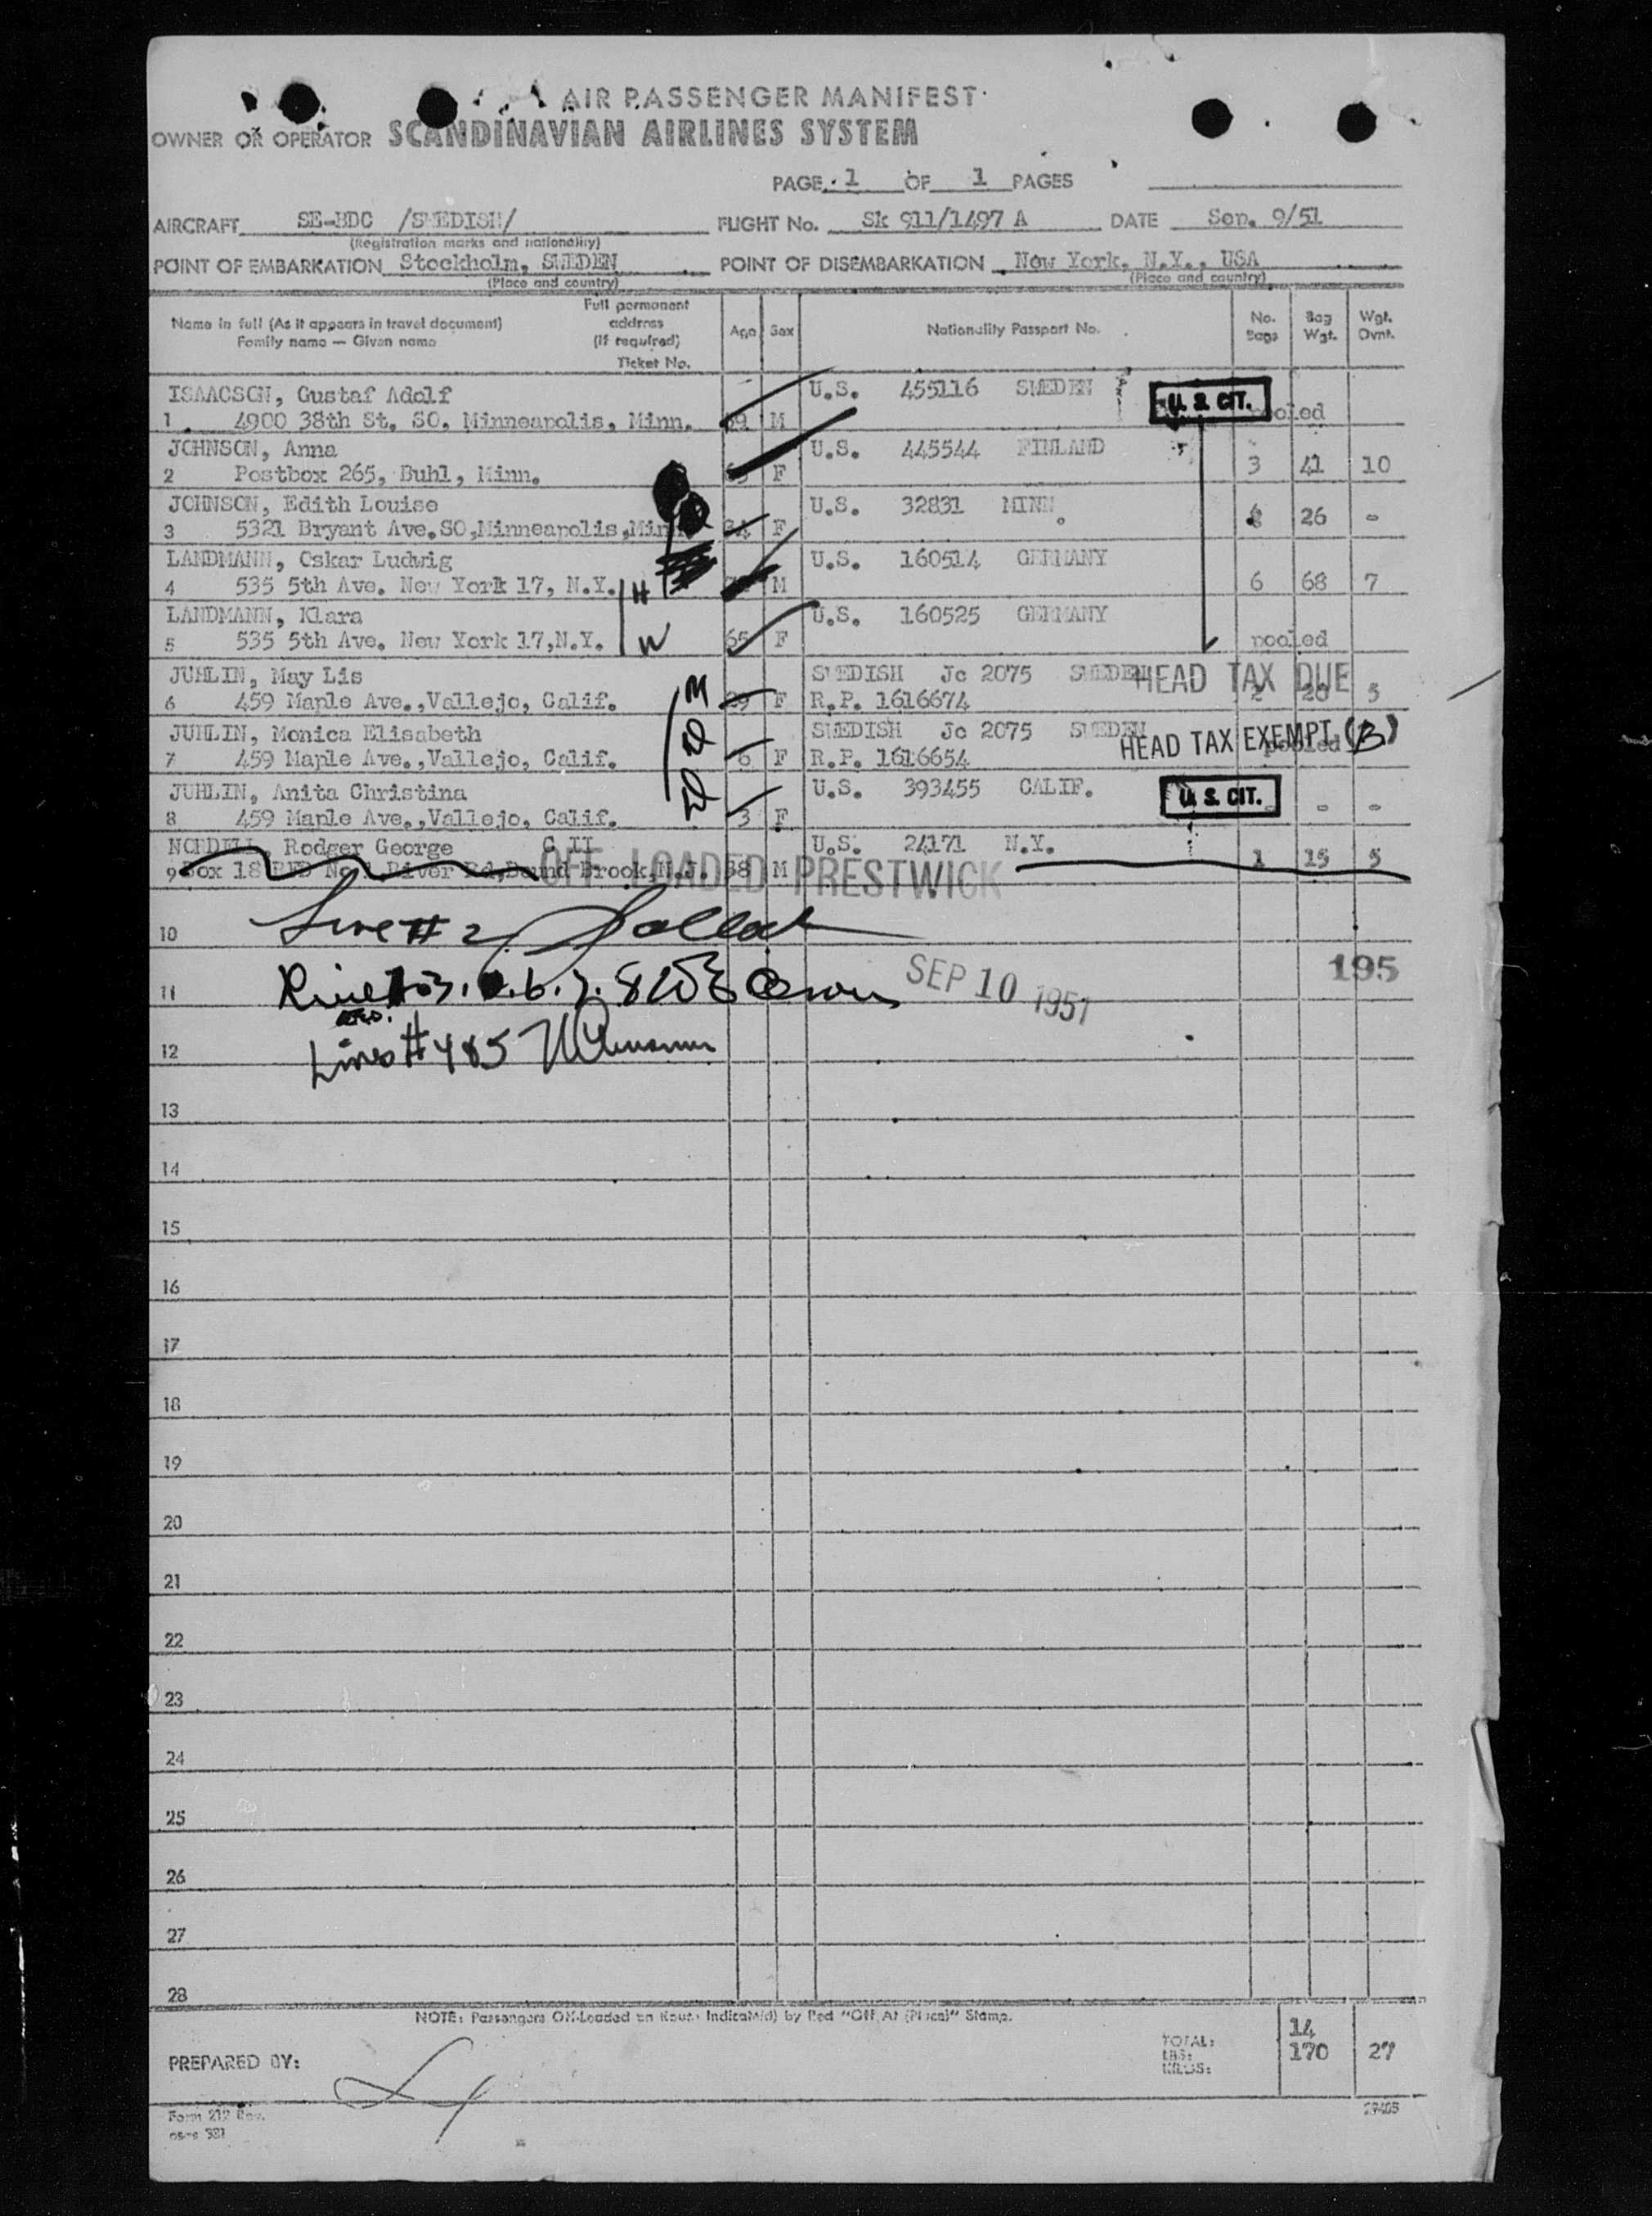 AIR PASSENGER MANIFEST
OWNER OR OPERATOR SCANDINAVIAN AIRLINES SYSTEM
PAGE 1 OF 1 PAGES
AIRCRAFT SE-BDC /SWEDISH/ FLIGHT No. Sk 911/1497 A DATE Sep. 9/51
(Registration marks and nationality)
POINT OF EMBARKATION Stockholm, SWEDEN POINT OF DISEMBARKATION New York, N.Y., USA
(Place and country) (Place and country)
Name in full (As it appears in travel document)
Family name — Given name
Full permanent address (If required)
Ticket No.
Age Sex Nationality Passport No. No. Bags Bag Wgt. Wgt. Ovnt.
ISAACSON, Gustaf Adolf U.S. 455116 SWEDEN U. S. CIT.
1 4900 38th St. SO, Minneapolis, Minn. M pooled
JOHNSON, Anna U.S. 445544 FINLAND
2 Postbox 265, Buhl, Minn. F 3 41 10
JOHNSON, Edith Louise U.S. 32831 MINN.
3 5321 Bryant Ave.SO,Minneapolis,Minn F 26 -
LANDMANN, Oskar Ludwig U.S. 160514 GERMANY
4 535 5th Ave. New York 17, N.Y. H M 6 68 7
LANDMANN, Klara U.S. 160525 GERMANY
5 535 5th Ave. New York 17,N.Y. W 65 F pooled
JUHLIN, May Lis SWEDISH Jc 2075 SWEDEN HEAD TAX DUE
6 459 Maple Ave.,Vallejo, Calif. M 29 F R.P. 1616674 2 20 5
JUHLIN, Monica Elisabeth SWEDISH Jc 2075 SWEDEN
7 459 Maple Ave.,Vallejo, Calif. 6 F R.P. 1616654 HEAD TAX EXEMPT (B) pooled
JUHLIN, Anita Christina U.S. 393455 CALIF. U. S. CIT.
8 459 Maple Ave.,Vallejo, Calif. 3 F - -
NORDELL, Rodger George C II U.S. 24171 N.Y.
9 Box 18 RFD No. 1 River Rd,Bound Brook,N.J. 38 M 1 15 5
OFF LOADED PRESTWICK
10 Line # 2
11 SEP 10 1951 195
12 Lines # 4&5
13
14
15
16
17
18
19
20
21
22
23
24
25
26
27
28
NOTE: Passengers Off-Loaded en Route Indicated by Red "Off At (Place)" Stamp.
PREPARED BY:
TOTAL: 14
LBS: 170 27
KILOS:
Form 212 Rev.
29405